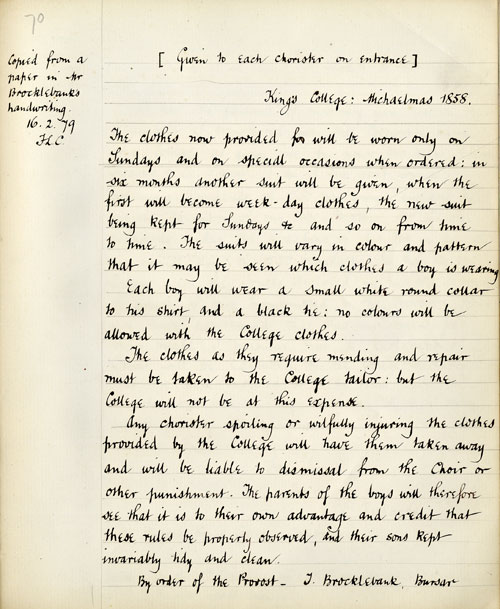 70
Copied from a
paper in Mr
Brocklebank's
handwriting.
16. 2. 79
[ Given to each chorister on entrance ]
King's College: Michaelmas 1858.
The clothes now provided for will be worn only on
Sundays and on special occasions when ordered: in
six months another suit will be given, when the
first will become week-day clothes, the new suit
being kept for Sundays &c and so on from time
to time. The suits will vary in colour and pattern
that it may be seen which clothes a boy is wearing
Each boy will wear a small white round collar
to his shirt, and a black tie: no colours will be
allowed with the College clothes.
The clothes as they require mending and repair
must be taken to the College tailor: but the
College will not be at this expense.
Any chorister spoiling or wilfully injuring the clothes
provided by the College will have them taken away
and will be liable to dismissal from the Choir or
other punishment. The parents of the boys will therefore
see that it is to their own advantage and credit that
these rules be properly observed, and their sons kept
invariably tidy and clean.
By order of the Provost - T. Brocklebank, Bursar